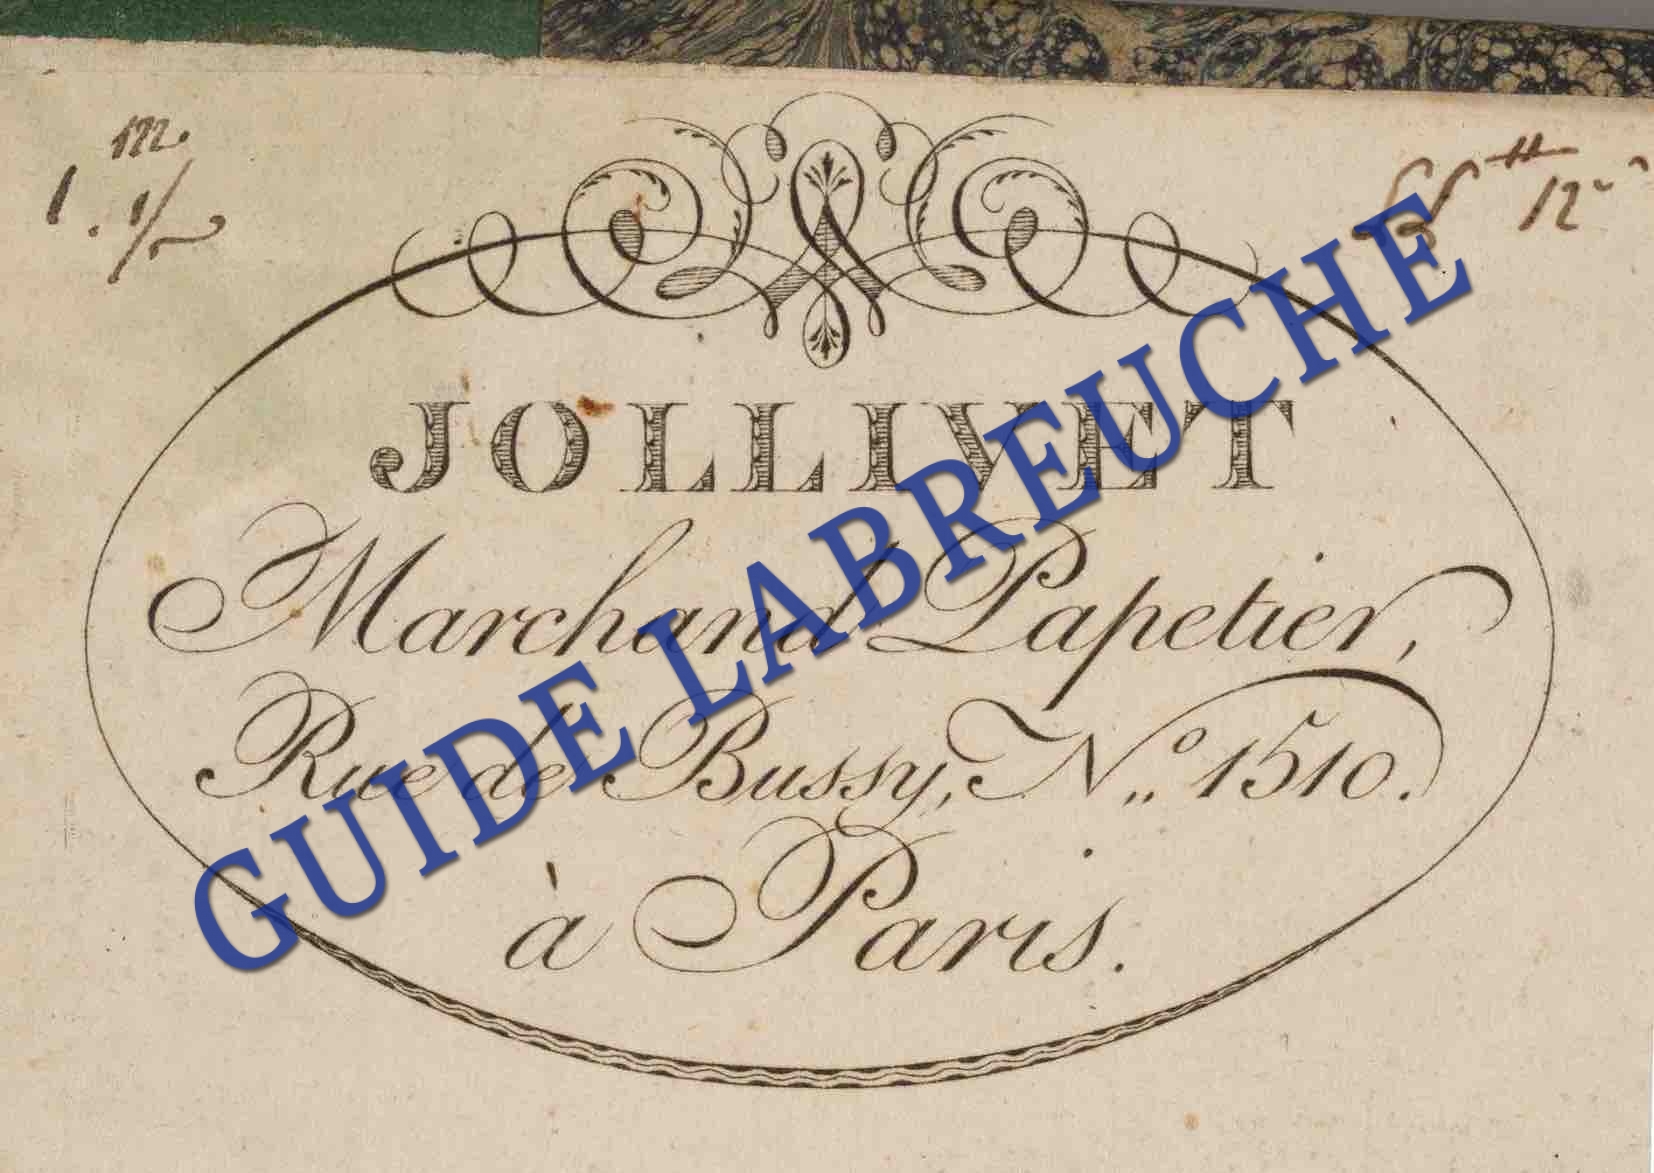 m.
1. 1/2
12
JOLLIVET
Marchand Papetier,
Rue de Bussy, N,,º 1510.
à Paris.
GUIDE LABREUCHE